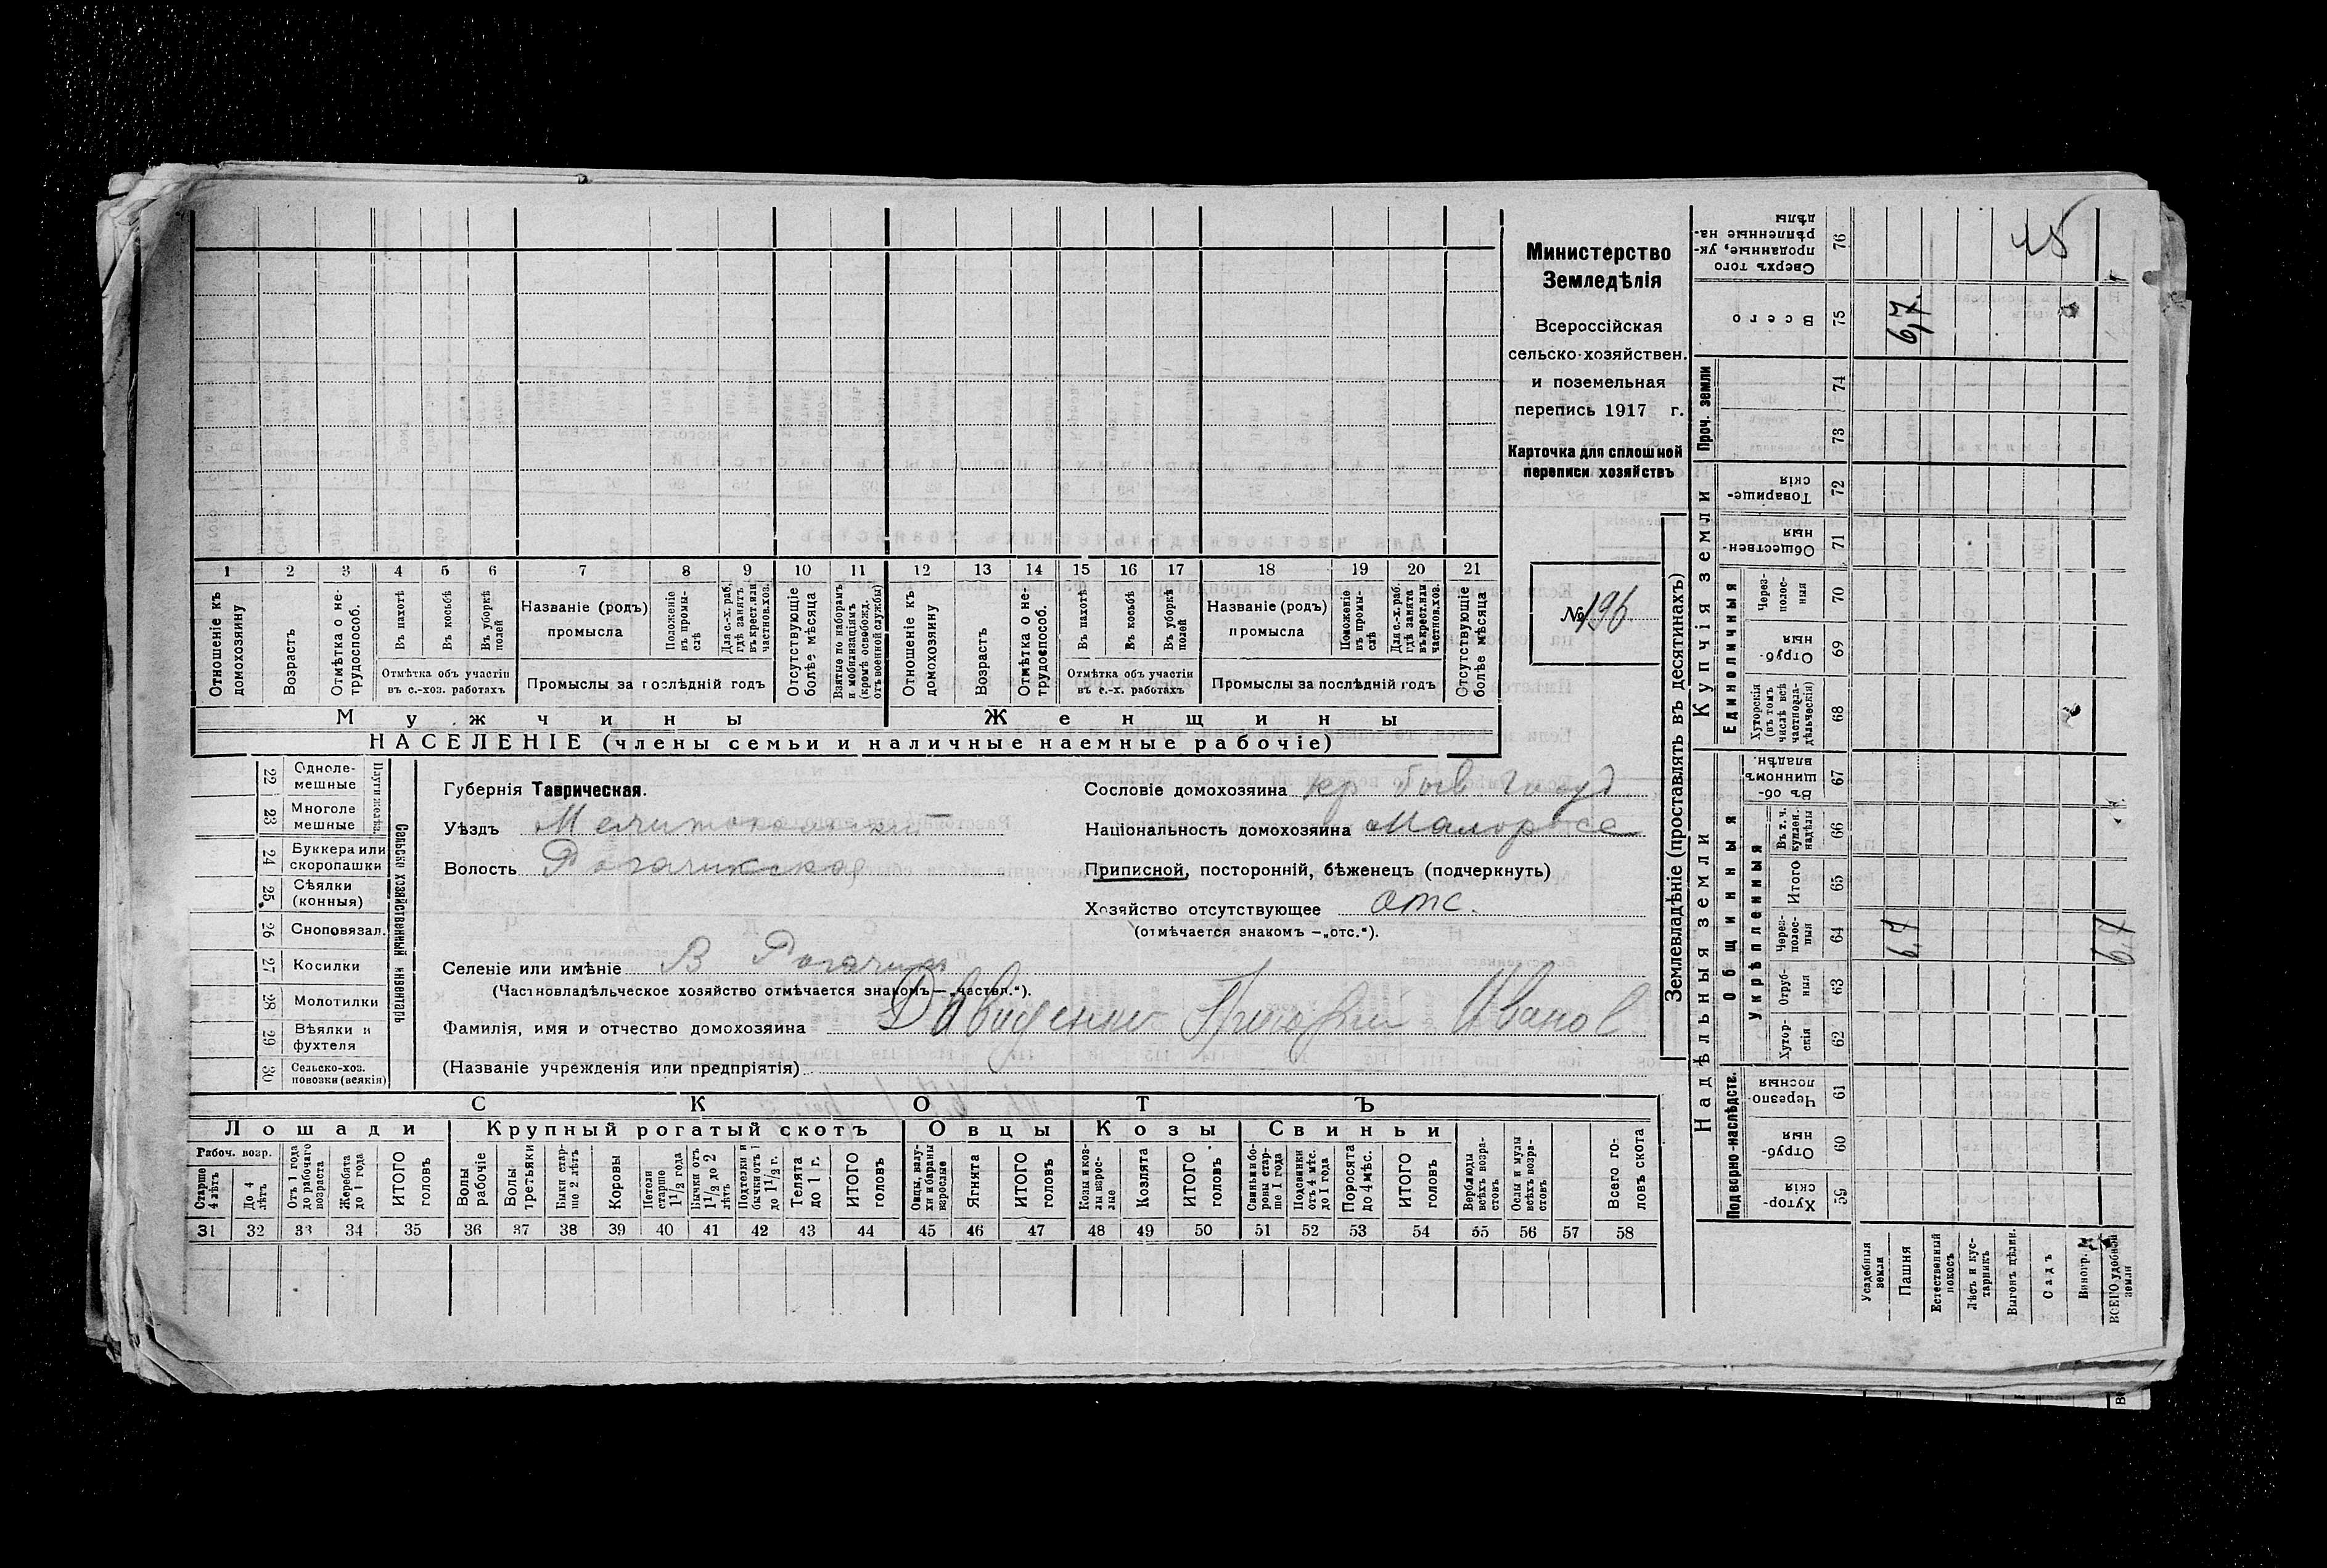 Министерство
Земледѣлія
Всероссійская
сельско-хозяйствен.
и поземельная
перепись 1917 г.
Карточка для сплошной
переписи хозяйствъ
№ 196
1 2 3 4 5 6 7 8 9 10 11 12 13 14 15 16 17 18 19 20 21
Отношеніе къ домохозяину
Возрастъ
Отмѣтка о не-трудоспособ.
Въ пахотѣ
Въ косьбѣ
Въ уборкѣ полей
Отмѣтка объ участіи въ с.-хоз. работахъ
Названіе (родъ) промысла
Положеніе въ промы-слѣ
Для с.-х. раб. гдѣ занятъ въ крест. или частнов. хоз.
Промыслы за послѣдній годъ
Отсутствующіе болѣе мѣсяца
Взятые по наборамъ и мобилизаціямъ (кромѣ освобожд. отъ военной службы)
Отношеніе къ домохозяину
Возрастъ
Отмѣтка о не-трудоспособ.
Въ пахотѣ
Въ косьбѣ
Въ уборкѣ полей
Отмѣтка объ участіи въ с.-х. работахъ
Названіе (родъ) промысла
Положеніе въ промы-слѣ
Для с.-х. раб. гдѣ занята въ крест. или частнов. хоз.
Промыслы за послѣдній годъ
Отсутствующіе болѣе мѣсяца
Мужчины Женщины
НАСЕЛЕНІЕ (члены семьи и наличные наемные рабочіе)
22 Одноле-мешные
23 Многоле мешные
Плуги желѣз.
24 Буккера или скоропашки
25 Сѣялки (конныя)
26 Сноповязал.
27 Косилки
28 Молотилки
29 Вѣялки и фухтеля
30 Сельско-хоз. повозки (всякія)
Сельско хозяйственный инвентарь
Губернія Таврическая.
Уѣздъ Мелитопольский
Волость Рогачикская
Селеніе или имѣніе В Рогачик
(Частновладѣльческое хозяйство отмѣчается знакомъ—„частвл.“).
Фамилія, имя и отчество домохозяина Давиденко Григорий Иванов
(Названіе учрежденія или предпріятія)
Сословіе домохозяина кр быв госуд
Національность домохозяина Малоросс
Приписной, посторонній, бѣженец (подчеркнуть)
Хозяйство отсутствующее отс.
(отмѣчается знакомъ —„отс.“).
СКОТЪ
Лошади Крупный рогатый скотъ Овцы Козы Свиньи
Рабоч. возр.
Старше 4 лѣтъ
До 4 лѣтъ
Отъ 1 года до рабочаго возраста
Жеребята до 1 года
ИТОГО головъ
Волы рабочіе
Волы третьяки
Быки стар-ше 2 лѣтъ
Коровы
Нетели старше 1 1/2 года
Бычки отъ 1 1/2 до 2 лѣтъ
Подтелки и бычки отъ 1 до 1 1/2 г.
Телята до 1 г.
ИТОГО головъ
Овцы, валу-хи и бараны взрослые
Ягнята
ИТОГО головъ
Козы и коз-лы взрос-лые
Козлята
ИТОГО головъ
Свиньи и бо-ровы стар-ше 1 года
Подсвинки отъ 4 мѣс. до 1 года
Поросята до 4 мѣс.
ИТОГО головъ
Верблюды всѣхъ возра-стовъ
Ослы и мулы всѣхъ возра-стовъ
Всего го-ловъ скота
31 32 33 34 35 36 37 38 39 40 41 42 43 44 45 46 47 48 49 50 51 52 53 54 55 56 57 58
Землевладѣніе (проставлять въ десятинахъ)
Купчія земли
Надѣльныя земли
Сверхъ того проданные, ук-рѣпленные на-дѣлы 76
Всего 75 6,7.
Проч. земли 74 73
Товарище-скія 72
Обществен-ныя 71
Единоличныя
Через-полос-ныя 70
Отруб-ныя 69
Хуторскія (въ томъ числѣ всѣ частновла-дѣльческія) 68
Общинныя
Въ об-щинномъ владѣн. 67
Укрѣпленныя
Въ т. ч. куплен. надѣлы 66
Итого 65
Через-полос-ныя 64 6,7 6,7
Отруб-ныя 63
Хутор-скія 62
Подворно-наслѣдств.
Черезпо-лосныя 61
Отруб-ныя 60
Хутор-скія 59
Усадебная земля
Пашня
Естественный покосъ
Лѣсъ и кус-тарникъ
Выгонъ цѣлин.
Садъ
Виногр.
ВСЕГО удобной земли